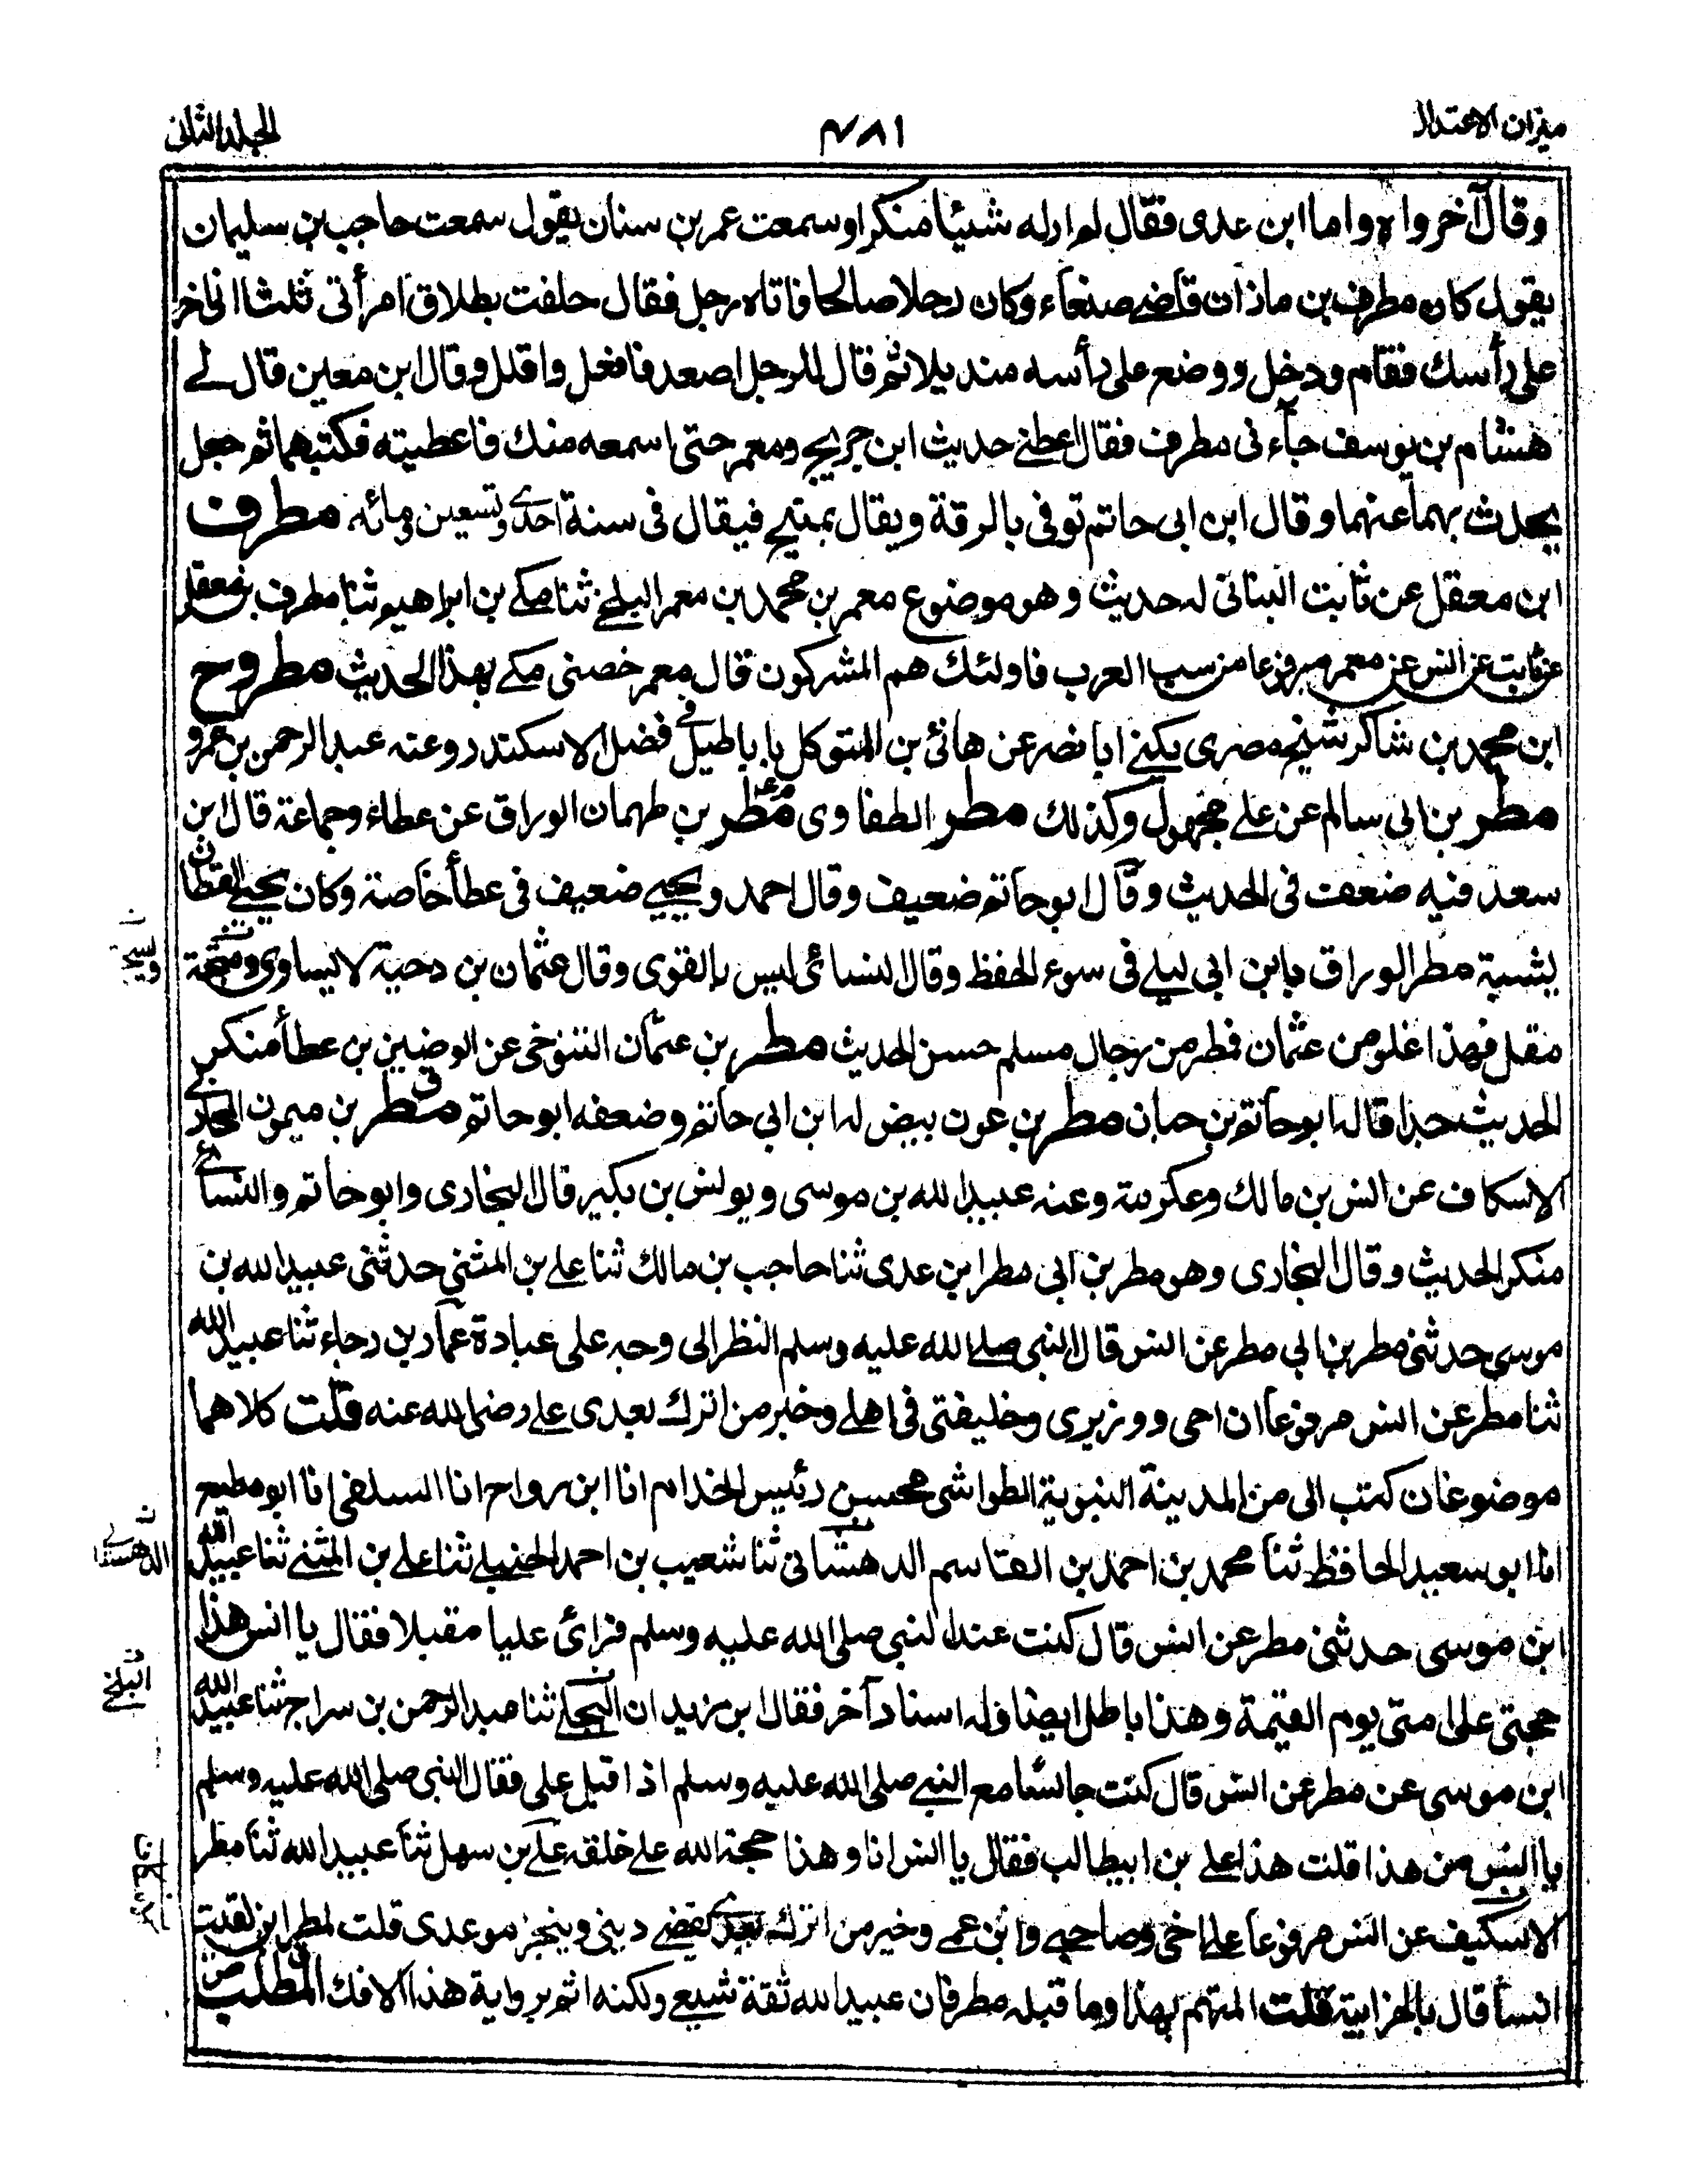 ميزان الاعتدال
٤٨١
الجلد الثانى
وقال آخر واه واما ابن عدى فقال لم ار له شيئا منكرا وسمعت عمر بن سنان يقول سمعت حاجب بن سليمان
يقول كان مطرف بن مازان قاضى صنعاء وكان رجلا صالحا فاتاه رجل فقال حلفت بطلاق امرأتى ثلثا انى اخر
على رأسك فقام ودخل ووضع على رأسه منديلا ثم قال للرجل اصعد فافعل واقلل وقال ابن معين قال لے
هشام بن يوسف جاءنى مطرف فقال اعطنے حديث ابن جريج ومعمر حتى اسمعه منك فاعطيته فكتبهما ثم جعل
يحدث بهما عنهما وقال ابن ابى حاتم توفى بالرقة ويقال بمنبج فيقال فى سنة احدے وتسعين ومائه مطرف
ابن معقل عن ثابت البنانى له حديث وهو موضوع معمر بن محمد بن معمر البلخے ثنا مكے بن ابراهيم ثنا مطرف بن معقل
عن ثابت عن انس عن معمر مرفوعا من سب العرب فاولئك هم المشركون قال معمر خصنى مكے بهذا الحديث مطروح
ابن محمد بن شاكر شيخ مصرى يكنے ابا نصر عن هانئ بن المتوكل باباطيل فے فضل الاسكندر وعنه عبد الرحمن بن عمرو
مطر بن ابى سالم عن على مجهول وكذلك مطر الطفاوى مطر بن طهمان الوراق عن عطاء وجماعة قال ابن
سعد فيه ضعف فى الحديث وقال ابو حاتم ضعيف وقال احمد ويحيى ضعيف فى عطأ خاصة وكان يحيے القطان
يشبه مطر الوراق بابن ابى ليلے فى سوء الحفظ وقال النسائى ليس بالقوى وقال عثمان بن دحية لا يساوى دستجة
مقل فهذا غلو من عثمان فمطر من رجال مسلم حسن الحديث مطر بن عثمان التنوخى عن الوضين بن عطأ منكر
الحديث جدا قاله ابو حاتم بن حبان مطر بن عون بيض له ابن ابى حاتم وضعفه ابو حاتم مطر بن ميمون المحاربے
الاسكاف عن انس بن مالك وعكرمة وعنه عبيد الله بن موسى ويونس بن بكير قال البخارى وابو حاتم والنسائے
منكر الحديث وقال البخارى وهو مطر بن ابى مطر ابن عدى ثنا حاجب بن مالك ثنا على بن المثنى حدثنى عبيد الله بن
موسى حدثنى مطر بن ابى مطر عن انس قال النبى صلے الله عليه وسلم النظر الى وجه على عبادة عمار بن رجاء ثنا عبيد الله
ثنا مطر عن انس مرفوعا ان اخى ووزيرى وخليفتى فى اهلے وخير من اترك بعدى على رضى الله عنه قلت كلاهما
موضوعان كتب الى من المدينة النبوية الطواشى محسن رئيس الخدام انا ابن رواح انا السلفى انا ابو مطيع
انا ابو سعيد الحافظ ثنا محمد بن احمد بن القاسم الدهشانى ثنا شعيب بن احمد الحنبلے ثنا على بن المثنے ثنا عبيد الله
ابن موسى حدثنى مطر عن انس قال كنت عند النبى صلى الله عليه وسلم فرأى عليا مقبلا فقال يا انس هذا
حجتى على امتى يوم القيمة وهذا باطل ايضا وله اسناد آخر فقال ابن زيدان البجلے ثنا عبد الرحمن بن سراج ثنا عبيد الله
ابن موسى عن مطر عن انس قال كنت جالسا مع النبے صلى الله عليه وسلم اذ اقبل على فقال النبى صلى الله عليه وسلم
يا انس من هذا قلت هذا على بن ابيطالب فقال يا انس انا وهذا حجة الله على خلقه على بن سهل ثنا عبيد الله ثنا مطر
الاسكيف عن انس مرفوعا على اخى وصاحبے وابن عمے وخير من اترك بعدے يقضے دينى وينجز موعدى قلت لمطر اين لقيت
انسا قال بالخرابية قلت المتهم بهذا وما قبله مطر فان عبيد الله ثقة شيعے ولكنه اثم برواية هذا الافك المطلب
البلخے